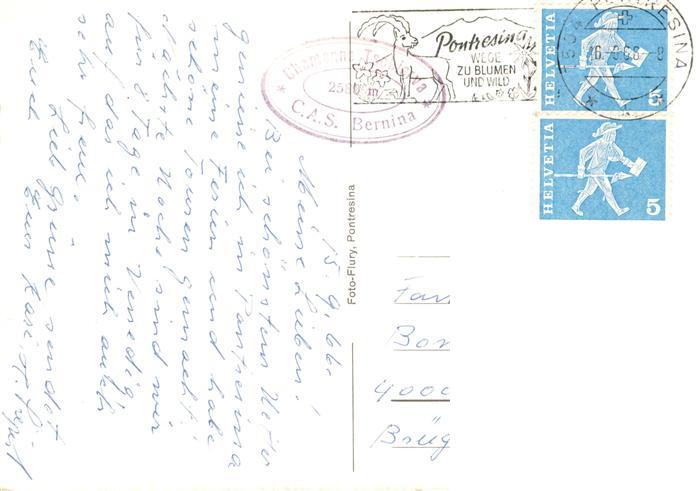 15. 9. 66.
Meine Lieben!
Bei schönstem Wetter
geniesse ich in Pontresina
meine Ferien und habe
schöne Touren gemacht.
nächste Woche sind wir
für 8 Tage in Venedig
auf das ich mich auch
sehr freue.
Lieb Grüsse sendet
Euch Euer
C.A.S. Bernina
Pontresina
WEGE
ZU BLUMEN
UND WILD
PONTRESINA
HELVETIA
5
HELVETIA
5
Foto-Flury, Pontresina
Fam
Bon
4000
Brüg